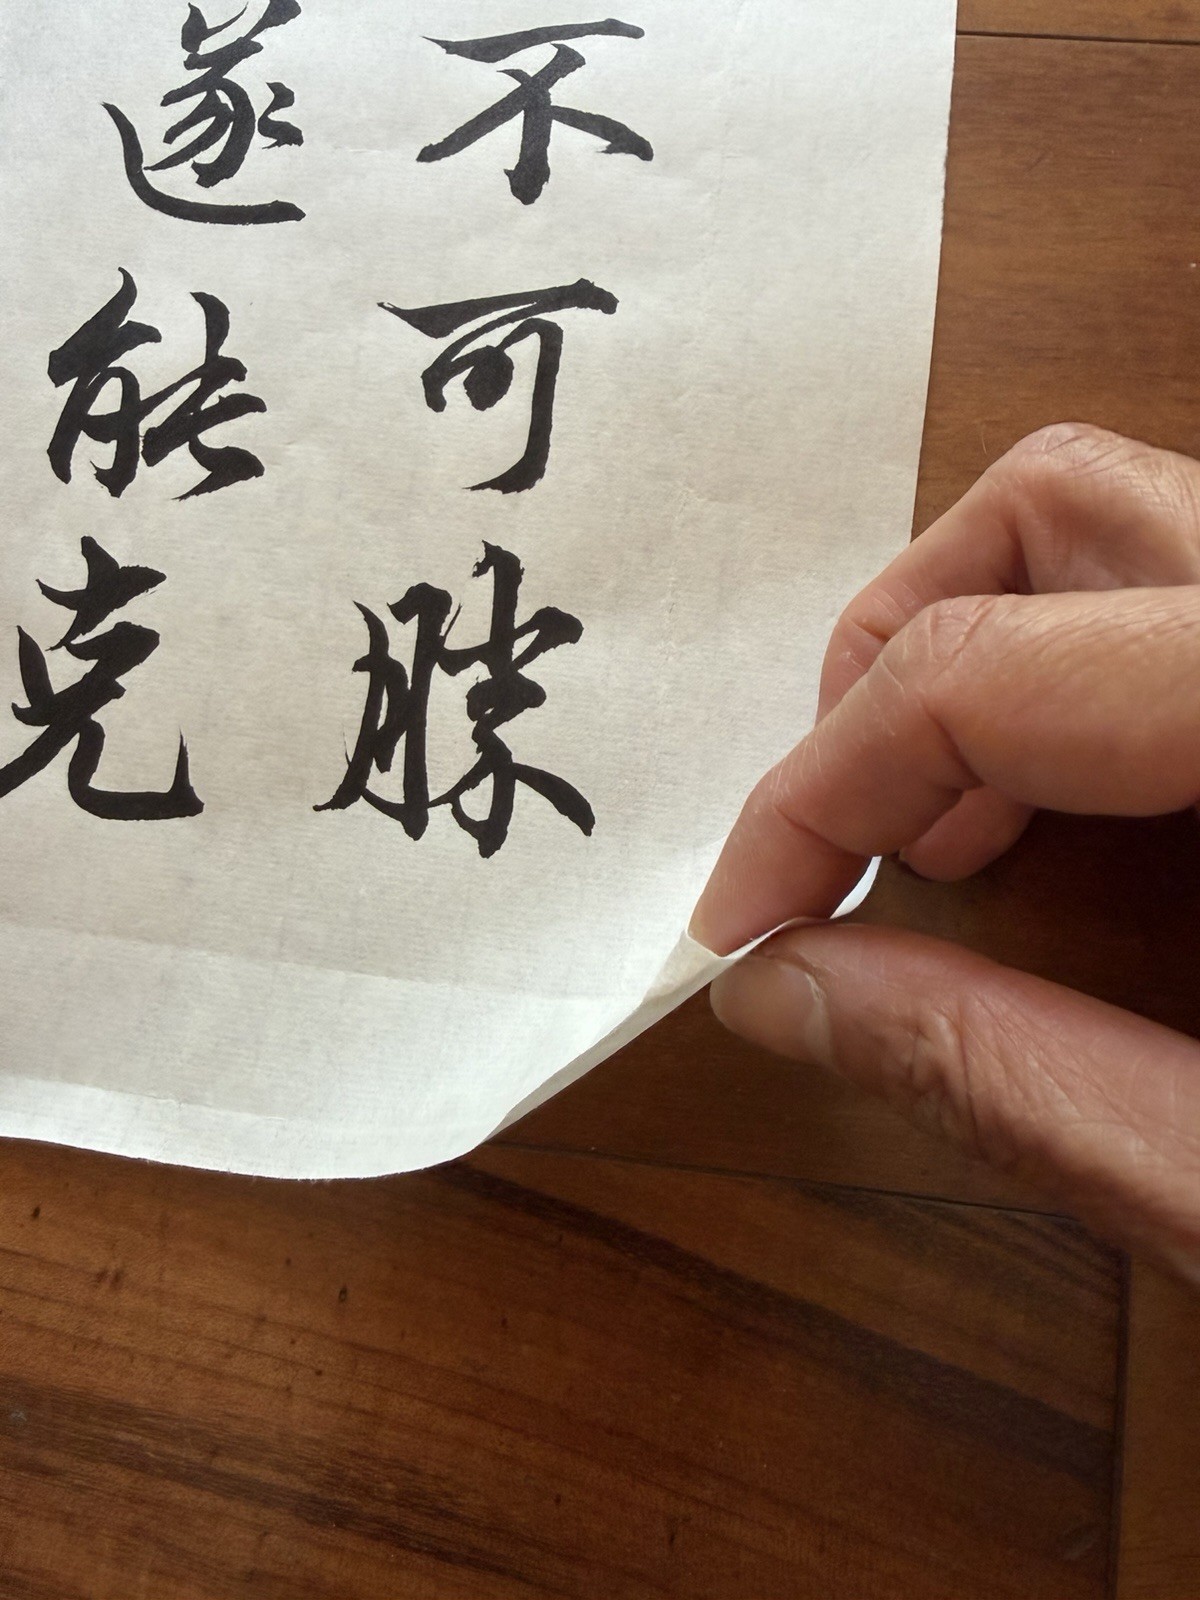 不可勝
遂能克